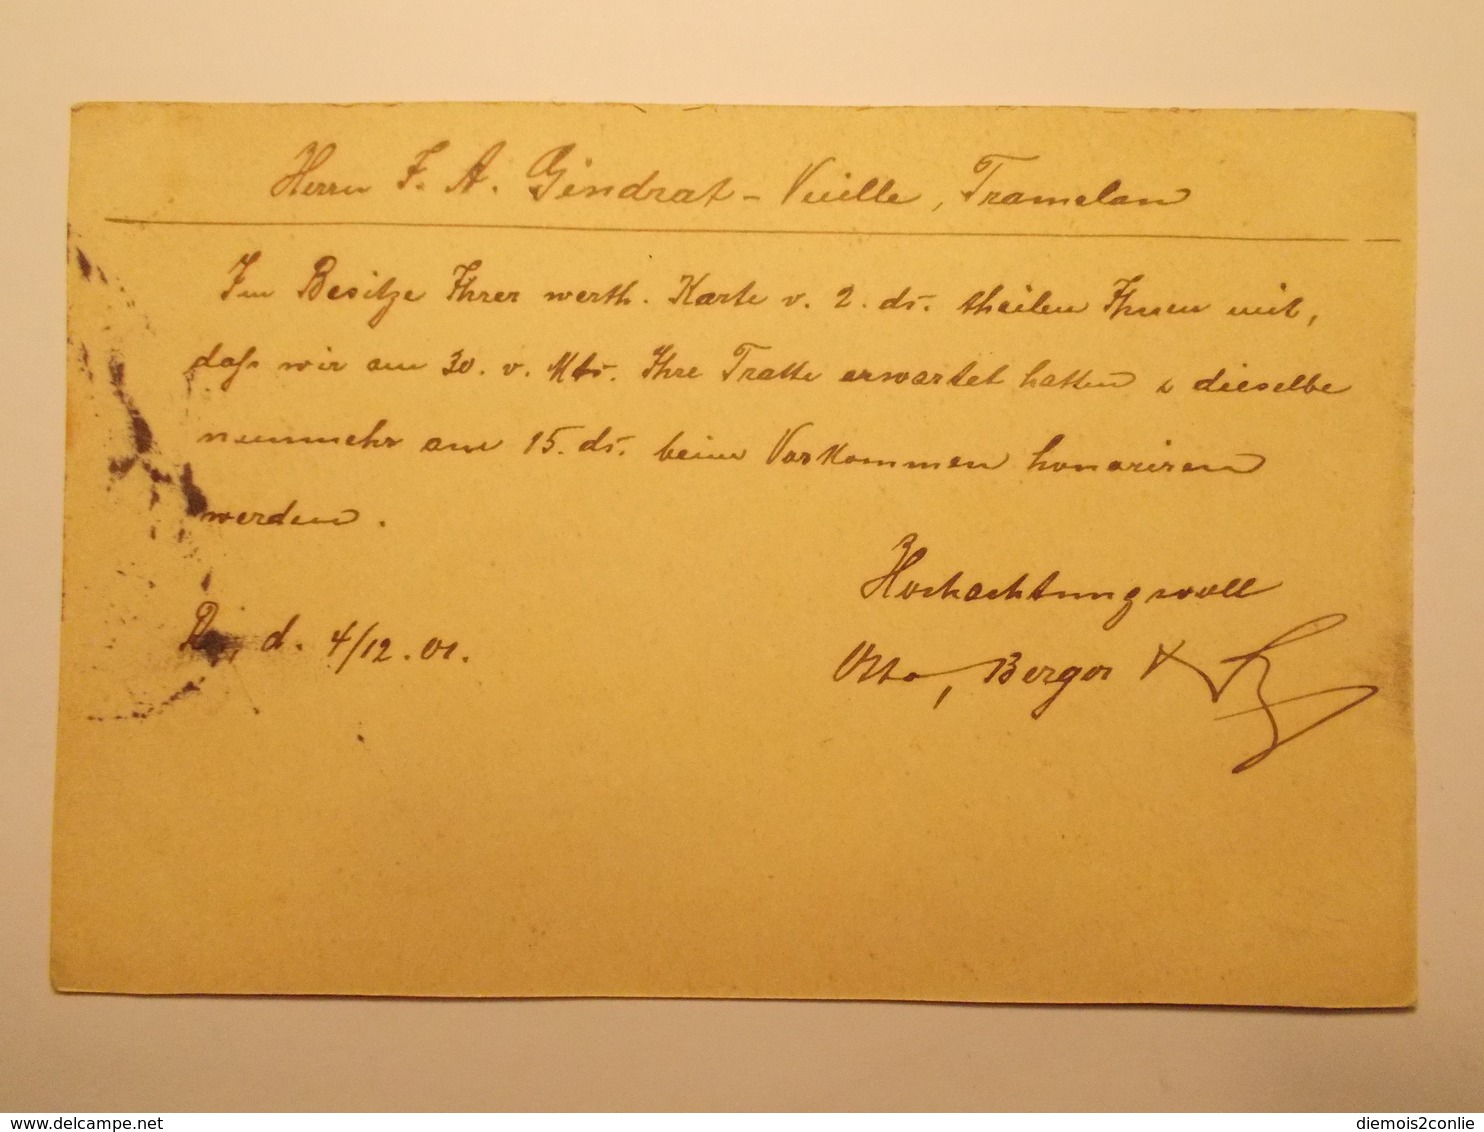 Herrn F. A. Gindrat - Vuille, Tramelan
Im Besitze Ihrer werth. Karte v. 2. ds. theilen Ihnen mit,
daß wir am 30. v. Mts. Ihre Tratte erwartet hatten & dieselbe
nunmehr am 15. ds. beim Vorkommen honoriren
werden.
d. 4/12. 01.
Hochachtungsvoll
Otto, Berger &
delcampe.net
diemois2conlie